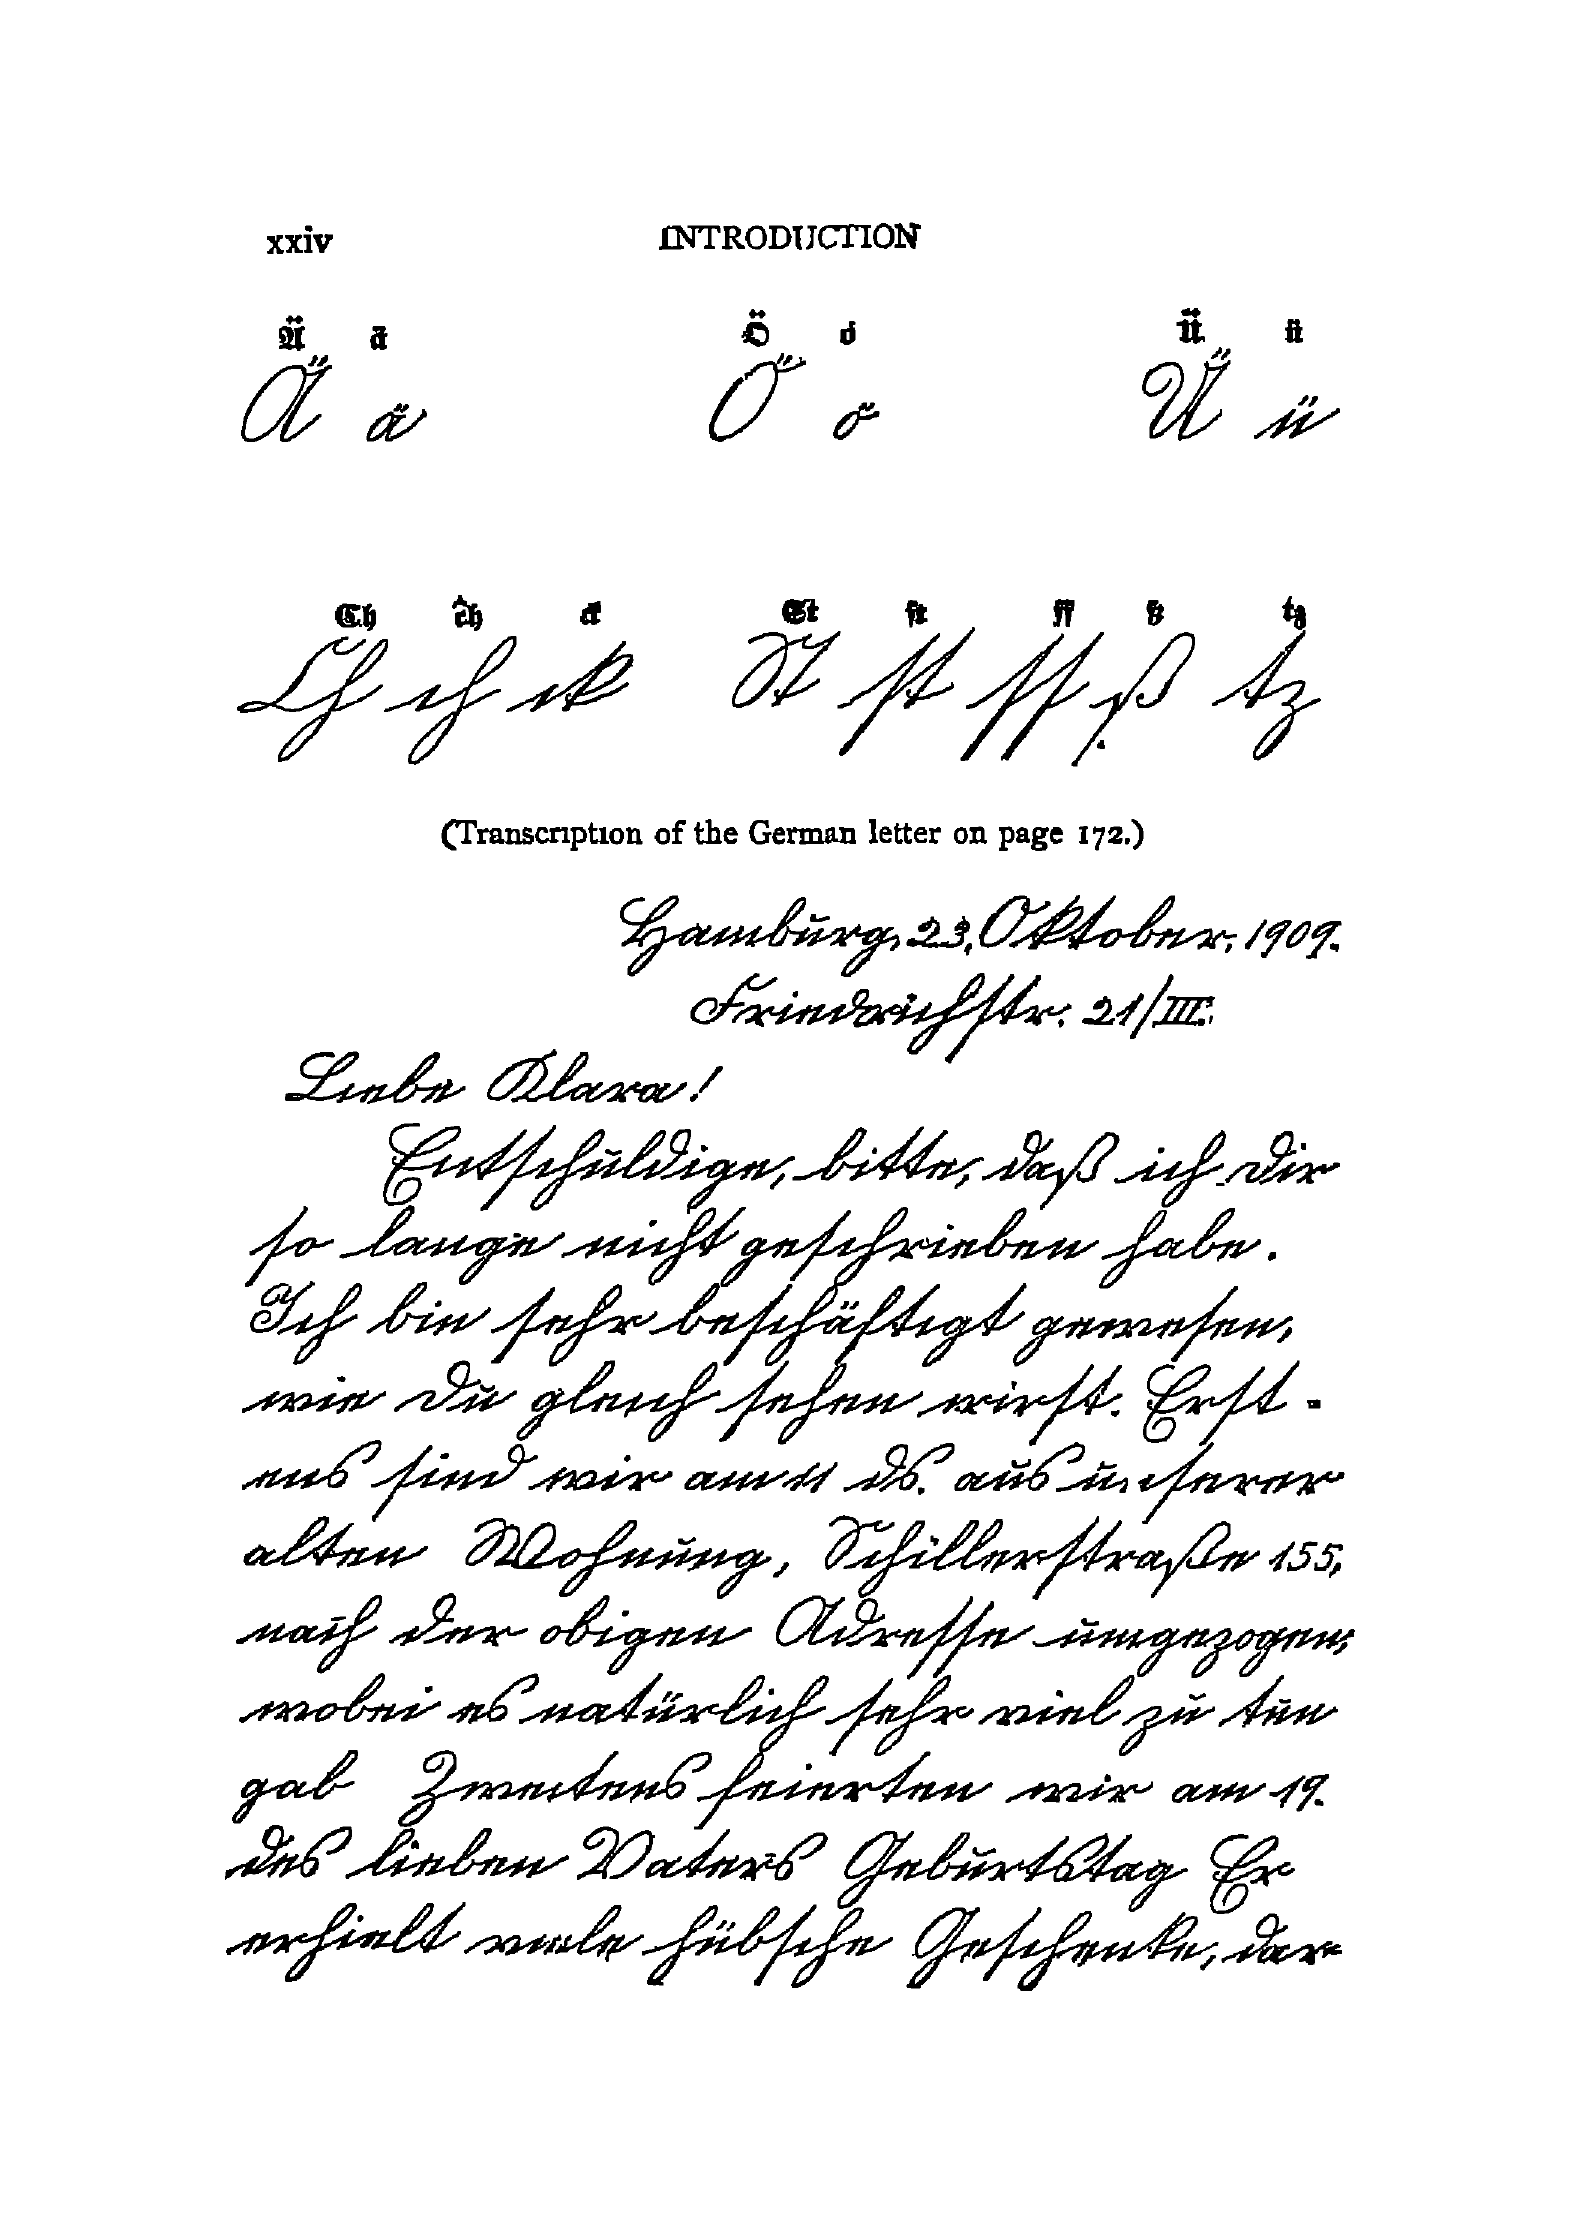 xxiv INTRODUCTION
Ä ä Ö ö Ü ü
Ä ä Ö ö Ü ü
Ch ch ck St st ss ß tz
Ch ch ck St st ss ß tz
(Transcription of the German letter on page 172.)
Hamburg, 23. Oktober, 1909.
Friedrichstr. 21/III.
Liebe Klara!
Entschuldige, bitte, daß ich Dir
so lange nicht geschrieben habe.
Ich bin sehr beschäftigt gewesen,
wie Du gleich sehen wirst. Erst-
ens sind wir am 11 ds. aus unserer
alten Wohnung, Schillerstraße 155,
nach der obigen Adresse umgezogen,
wobei es natürlich sehr viel zu tun
gab Zweitens feierten wir am 19.
des lieben Vaters Geburtstag Er
erhielt viele hübsche Geschenke, dar-